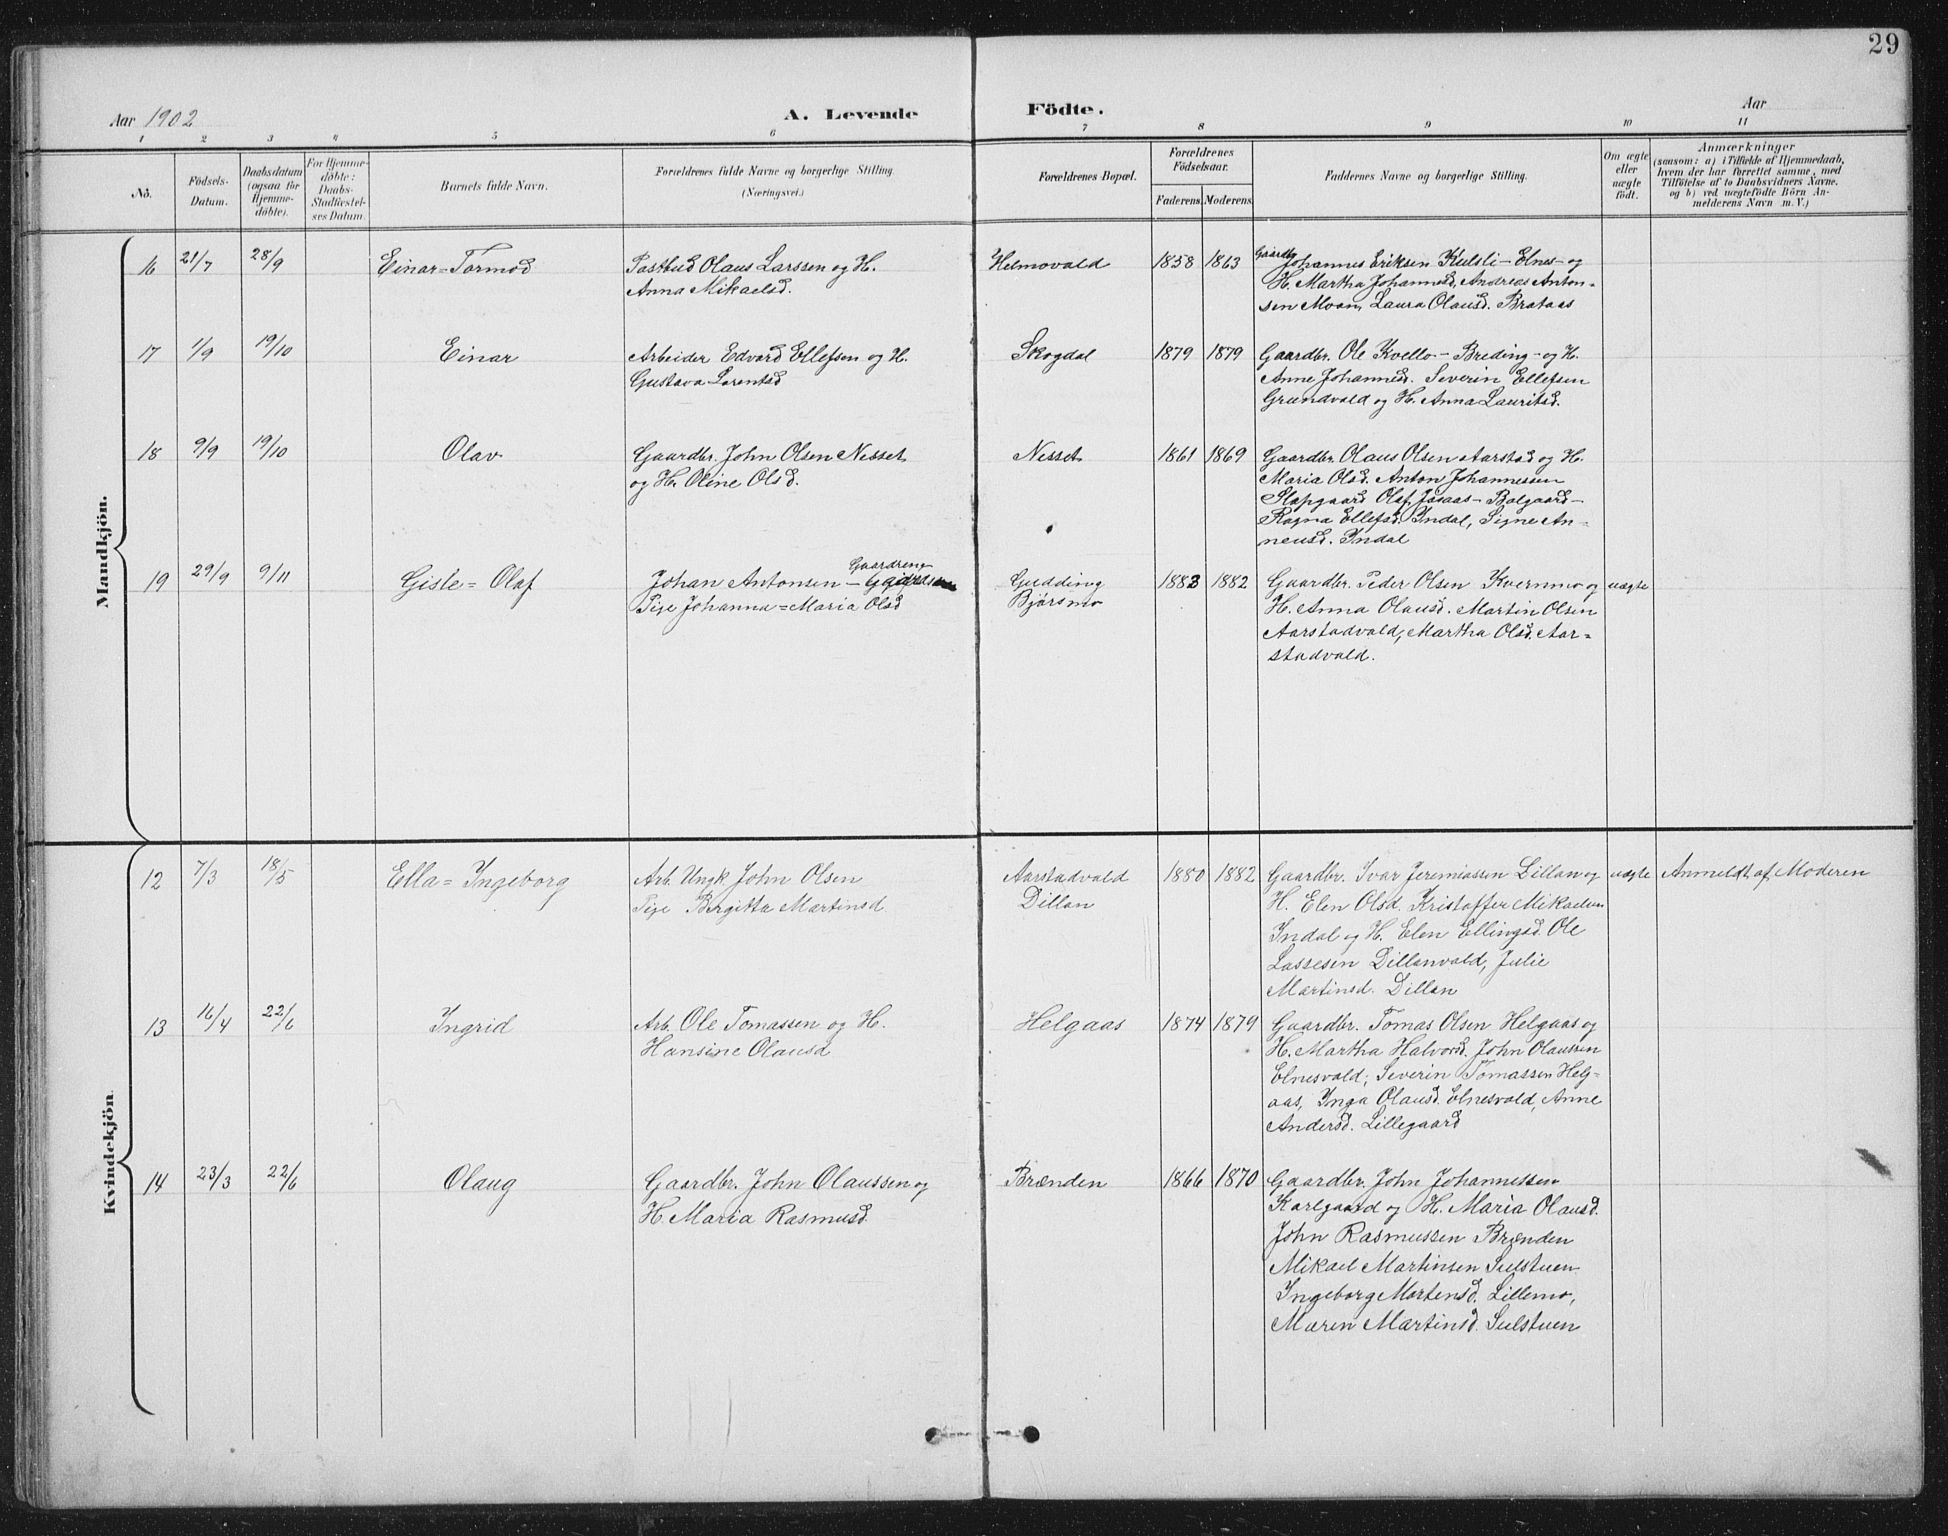 29
Aar 1902
A. Levende Födte.
Aar
1 2 3 4 5 6 7 8 9 10 11
No.
Födsels-Datum.
Daabsdatum (ogsaa for Hjemme-döbte).
For Hjemme-döbte: Daabs-Stadfæstel-ses Datum.
Barnets fulde Navn.
Forældrenes fulde Navne og borgerlige Stilling.
(Næringsvei.)
Forældrenes Bopæl.
Forældrenes Födselsaar.
Faderens. Moderens.
Faddernes Navne og borgerlige Stilling.
Om ægte eller uægte födt.
Anmærkninger
(saasom: a) i Tilfælde af Hjemmedaab,
hvem der har forrettet samme, med
Tilföielse af to Daabsvidners Navne,
og b) ved uægtefödte Börn An-
melderens Navn m. V.)
Mandkjön.
16 21/7 28/9 Einar=Tormod
Postbud Olaus Larssen og H.
Anna Mikaelsd.
Helmovald 1858 1863
Gaardbr.
Johannes Eriksen Kulsli - Elnes - og
H. Martha Johannesd, Andreas Anton=
sen Moan, Laura Olausd. Brataas
17 1/9 19/10 Einar
Arbeider Edvard Ellefsen og H.
Gustava Lorentsd
Skogdal 1879 1879
Gaardbr. Ole Kvello - Breding - og H.
Anne Johannesd. Severin Ellefsen
Grundvald og H. Anna Lauritsd.
18 9/9 19/10 Olav
Gaardbr. John Olsen Nesset
og H. Oline Olsd.
Nesset 1861 1869
Gaardbr. Olaus Olsen Aarstad og H.
Maria Olsd. Anton Johannessen
Slapgaard Olaf Jøsaas - Balgaard -
Ragna Ellefsd. Indal, Signe An=
neusd. Indal
19 29/9 9/11 Gisle=Olaf
Gaardreng
Johan Antonsen -
Pige Johanna=Maria Olsd
Gudding
Bjørsmo
1883 1882
Gaardbr. Peder Olsen Kvernmo og
H. Anna Olausd. Martin Olsen
Aarstadvald, Martha Olsd. Aar=
stadvald.
uægte
Kvindekjön.
12 7/3 18/5 Ella=Ingeborg
Arb. Ungk. John Olsen
Pige Bergitta Martinsd
Aarstadvald
Dillan
1880 1882
Gaardbr. Ivar Jeremiassen Lillan og
H. Elen Olsd. Kristoffer Mikaelsen
Indal og H. Elen Ellingsd. Ole
Lassesen Dillanvald, Julie
Martinsd. Dillan
uægte
Anmeldt af Moderen
13 16/4 22/6 Ingrid
Arb. Ole Tomassen og H.
Hansine Olausd
Helgaas 1874 1879
Gaardbr. Tomas Olsen Helgaas og
H. Martha Halvorsd. John Olaussen
Elnesvald; Severin Tomassen Helg-
aas, Inga Olausd. Elnesvald, Anne
Andersd. Lillegaard
14 23/3 22/6 Olaug
Gaardbr. John Olaussen og
H. Maria Rasmusd.
Brænden 1866 1870
Gaardbr. John Johannessen
Karlgaard og H. Maria Olausd.
John Rasmussen Brænden
Mikael Martinsen Sulstuen
Ingeborg Mortensd. Lillemo,
Maren Martinsd. Sulstuen